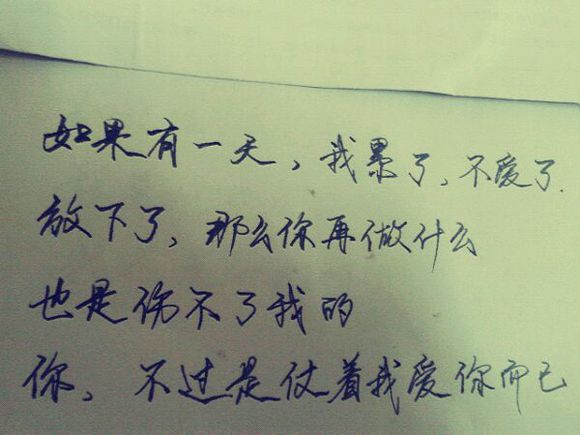 如果有一天，我累了，不爱了.
放下了，那么你再做什么
也是伤不了我的
你，不过是仗着我爱你而已